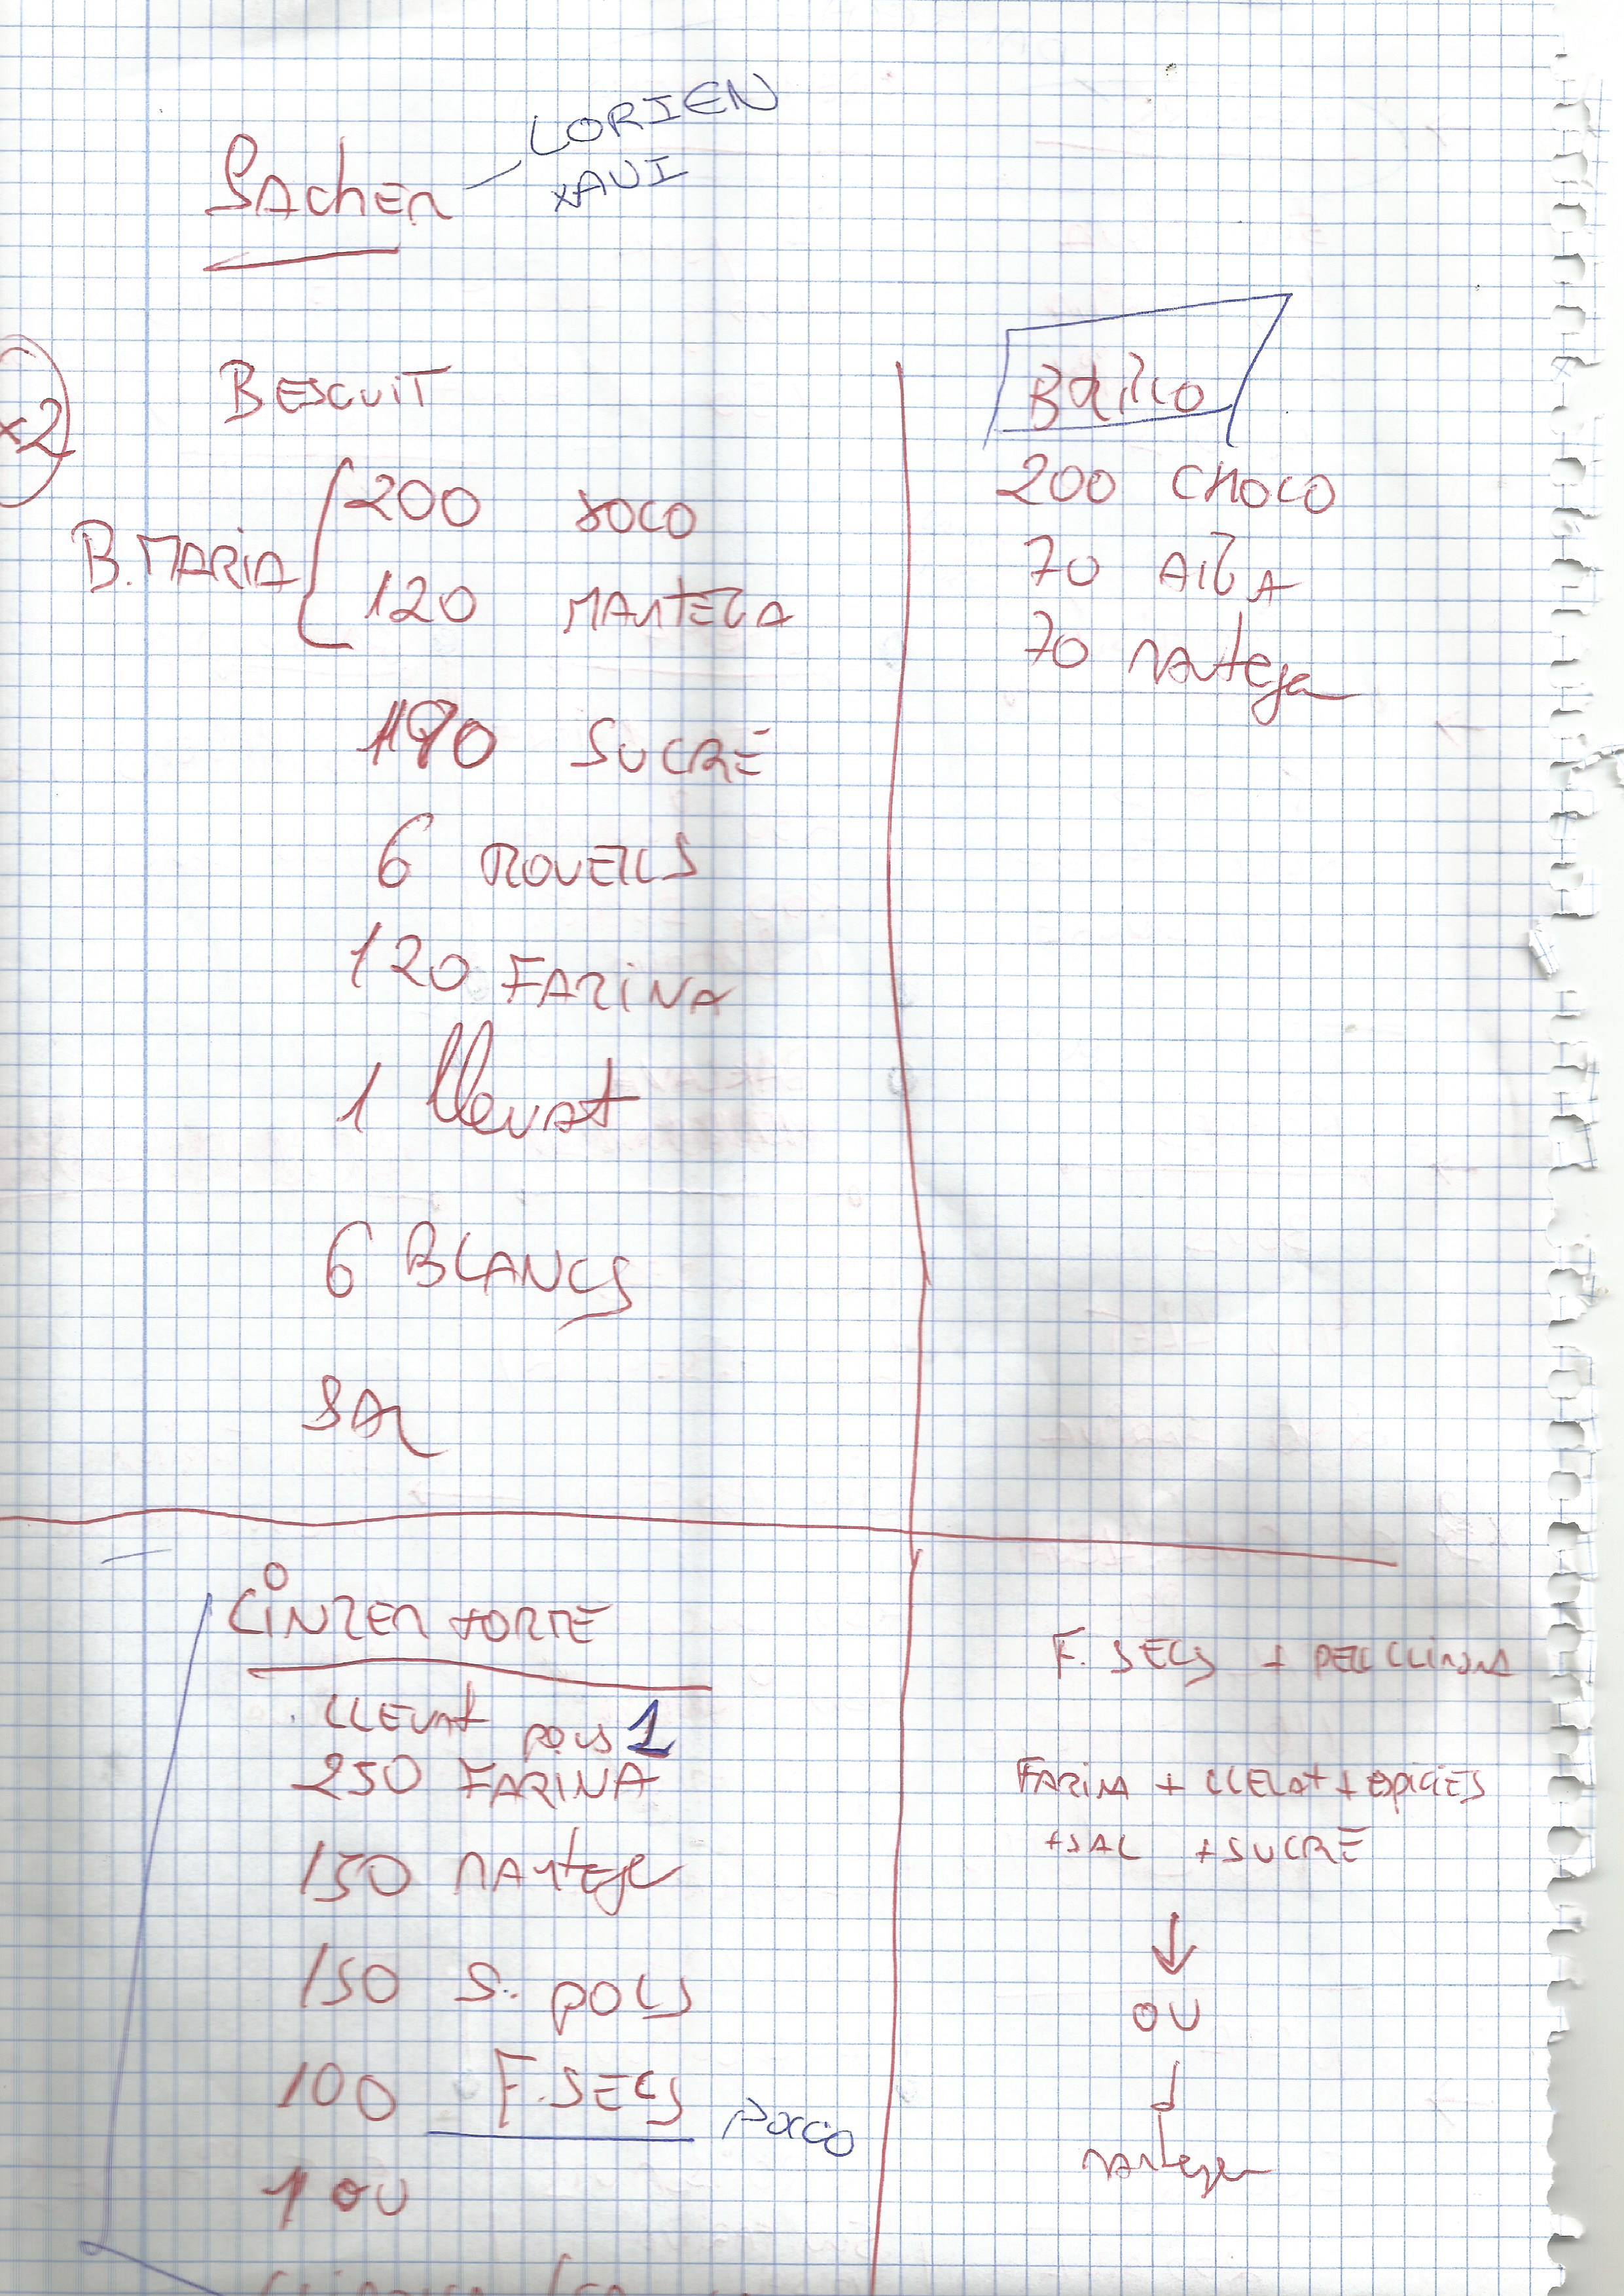 SACHER
LORIEN
XAVI
x2
BESCUIT
B. MARIA
200 XOCO
120 MANTEGA
190 SUCRE
6 ROVELLS
120 FARINA
1 llevat
6 BLANCS
SAL
BRILLO
200 CHOCO
70 AIGUA
70 mantega
LINZER TORTE
LLEVAT POLS 1
250 FARINA
150 MANTEGA
150 S. POLS
100 F. SECS
1 OU
F. SECS + PELL LLIMONA
FARINA + LLEVAT + ESPICIES
+ SAL + SUCRE
↓
OU
↓
mantega